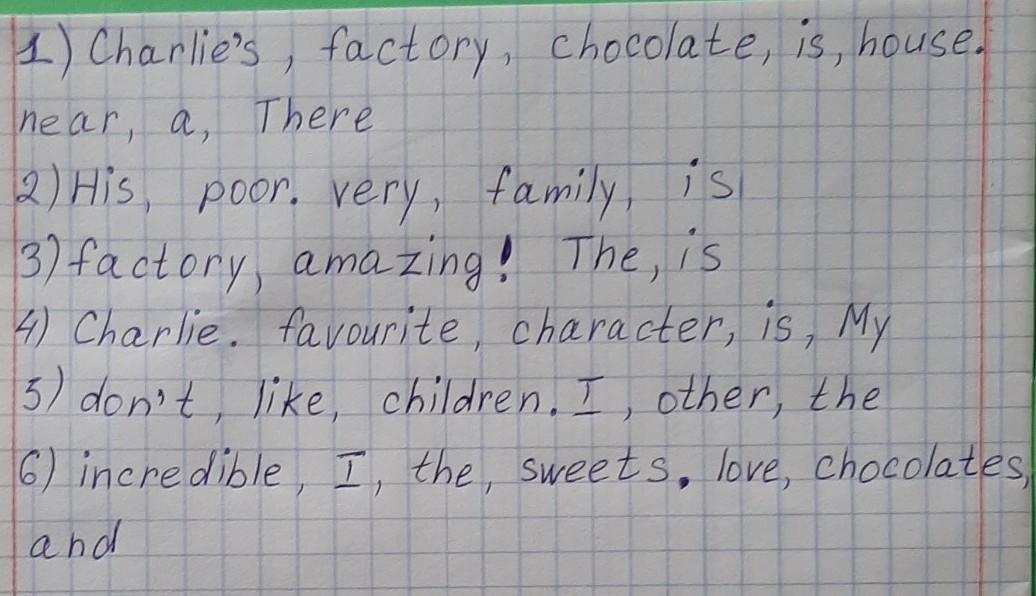 1) Charlie's, factory, chocolate, is, house.
near, a, There
2) His, poor. very, family, is
3) factory, amazing! The, is
4) Charlie. favourite, character, is, My
5) don't, like, children. I, other, the
6) incredible, I, the, sweets. love, chocolates,
and